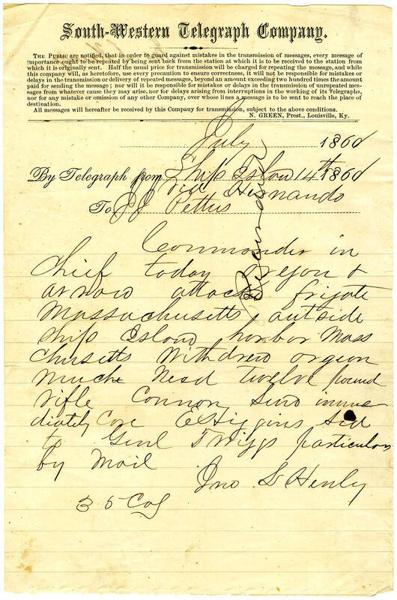 South-Western Telegraph Company.
The Public are notified, that in order to guard against mistakes in the transmission of messages, every message of
importance ought to be repeated by being sent back from the station at which it is to be received to the station from
which it is originally sent. Half the usual price for transmission will be charged for repeating the message, and while
this company will, as heretofore, use every precaution to ensure correctness, it will not be responsible for mistakes or
delays in the transmission or delivery of repeated messages, beyond an amount exceeding two hundred times the amount
paid for sending the message; nor will it be responsible for mistakes or delays in the transmission of unrepeated messages
from whatever cause they may arise, nor for delays arising from interruptions in the working of its Telegraphs,
nor for any mistake or omission of any other Company, over whose lines a message is to be sent to reach the place of
destination.
All messages will hereafter be received by this Company for transmission, subject to the above conditions.
N. GREEN, Prest., Louisville, Ky.
July 186
By Telegraph from Ship Island 14th 186
via Hernando
To J J Pettus
Commander in
chief today oregon &
arrow attack frigate
Massachusetts outside
ship Island harbor Mass
chusetts withdrew oregon
much need twelve pound
rifle Cannon send imme
diately Care E Higgins
to Genl Twiggs particulars
by mail
Jno Henly
35 Col